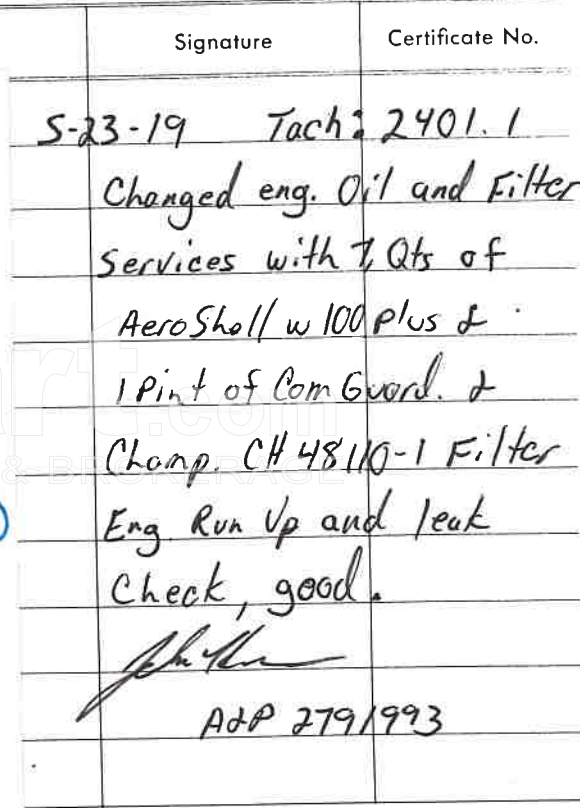 Signature Certificate No.
5-23-19 Tach: 2401.1
Changed eng. Oil and Filter
Services with 7 Qts of
AeroShell w 100 plus &
1 Pint of Com Guard. &
Champ. CH 48110-1 Filter
& BROKERAGE
Eng Run Up and leak
Check, good.
A&P 2791993